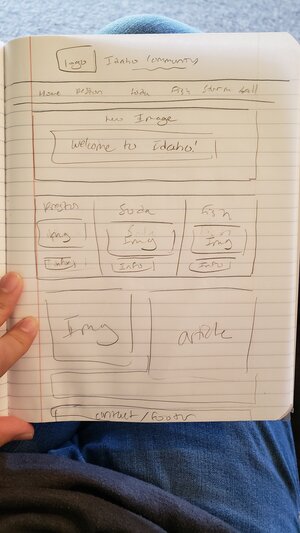 logo Idaho Community
Home Preston Soda Fish Storm Gall
hero Image
Welcome to Idaho!
Preston Soda Fish
Img Img Img
Info Info Info
Img article
contact / footer